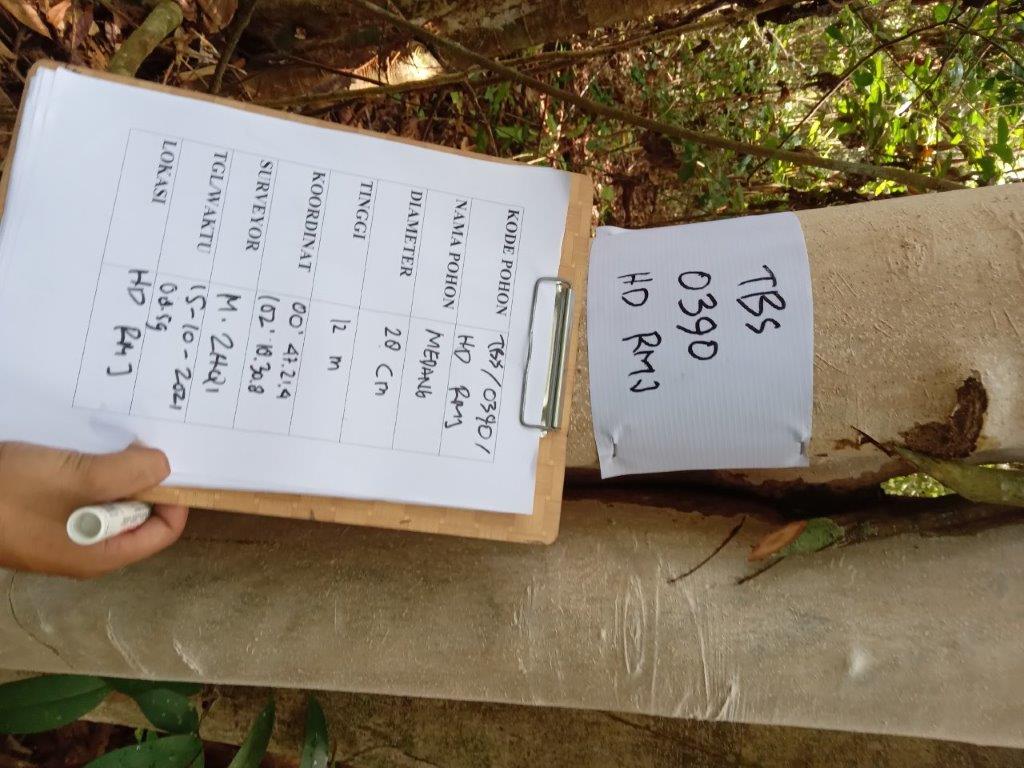 TBS
0390
HD RMJ
KODE POHON TBS/0390/
HD RMJ
NAMA POHON MEDANG
DIAMETER 28 Cm
TINGGI 12 m
KOORDINAT 00° 47.21.4
102° 18.30.8
SURVEYOR M. ZHQI
TGL/WAKTU 15-10-2021
08.59
LOKASI HD RMJ